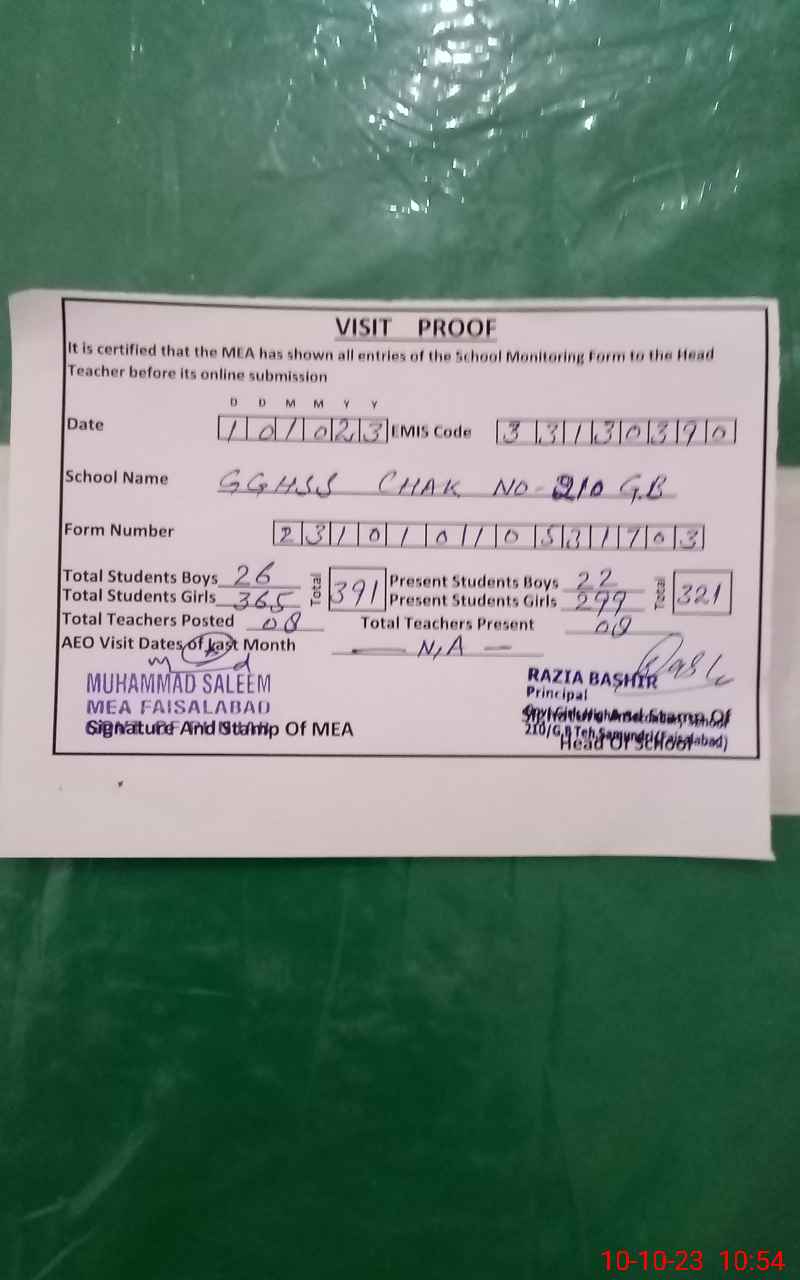 VISIT PROOF
It is certified that the MEA has shown all entries of the School Monitoring Form to the Head
Teacher before its online submission
D D M M Y Y
Date 101023 EMIS Code 33130390
School Name GGHSS CHAK NO-210 GB
Form Number 23101010531703
Total Students Boys 26 Total 391 Present Students Boys 22 Total 321
Total Students Girls 365 Present Students Girls 299
Total Teachers Posted 08 Total Teachers Present 08
AEO Visit Dates of last Month — N,A —
MUHAMMAD SALEEM
MEA FAISALABAD
Signature And Stamp Of MEA
RAZIA BASHIR
Principal
Signature And Stamp Of
210/G.B Teh Samundri (Faisalabad)
Head Of School
10-10-23 10:54